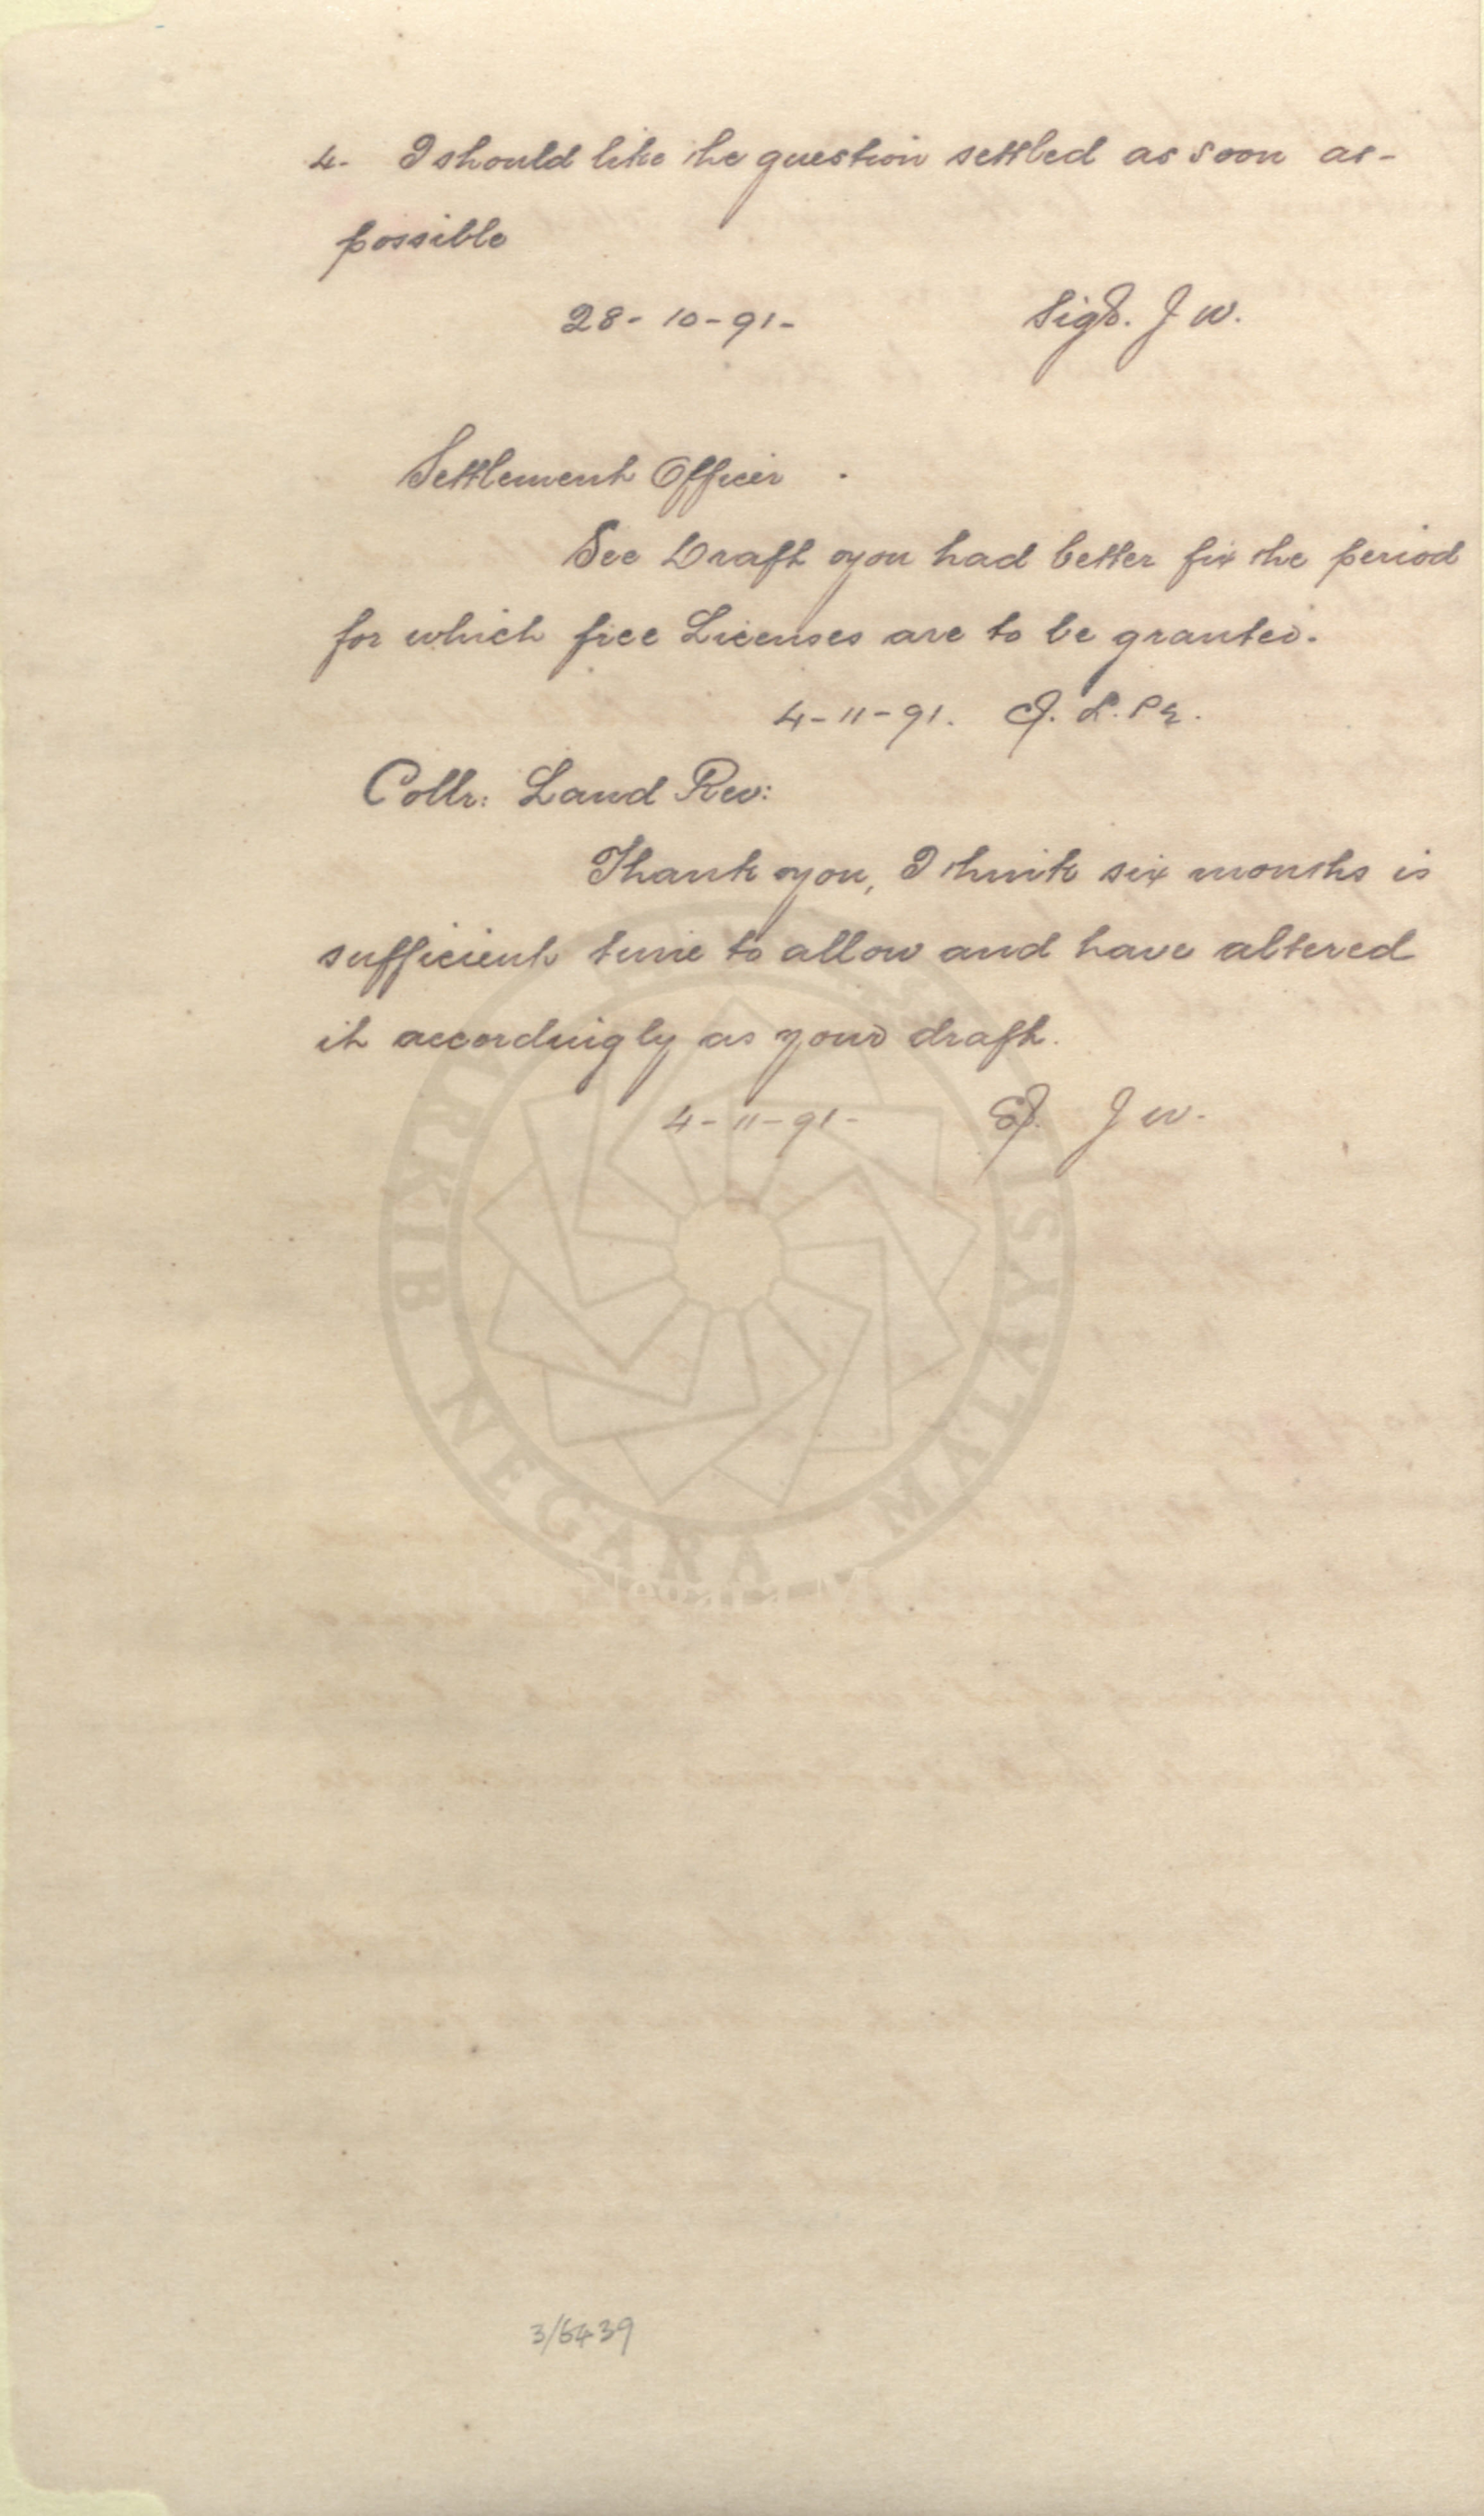 4- I should like the question settled as soon as-
possible
28-10-91- Sigd. J W.
Settlement Officer.
See Draft you had better fix the period
for which free Licenses are to be granted.
4-11-91.
Collr: Land Rev:
Thank you, I think six months is
sufficient time to allow and have altered
it accordingly as your draft.
4-11-91- Sd. J W.
ARKIB NEGARA MALAYSIA
3/6439